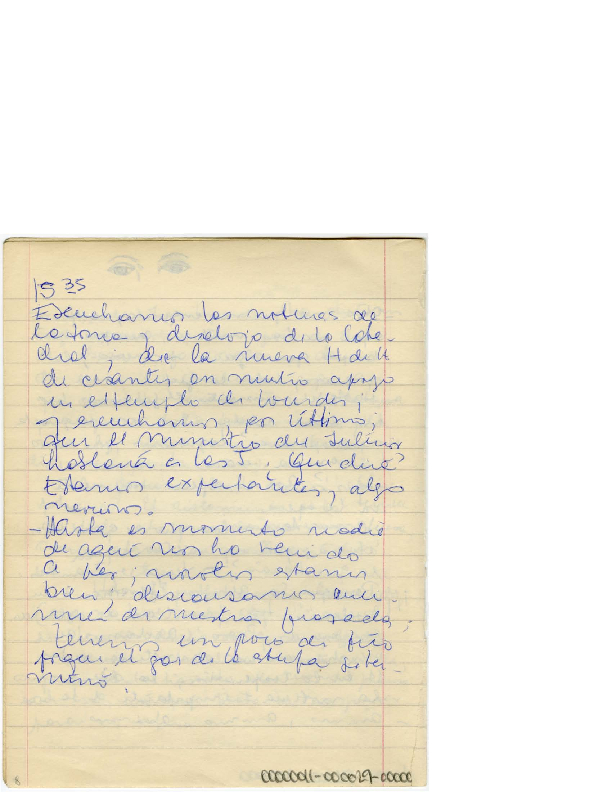 15 35
Escuchamos las noticias de
la toma y desalojo de la Cate-
dral, de la nueva H de H
de cesantes en nuestro apoyo
en el templo de Lourdes,
y escuchamos, por último,
que el Ministro del Interior
hablará a las
Estamos expectantes, algo
nerviosos.
- Hasta es momento nadie
de aquí nos ha venido
a ver; nosotros estamos
bien, descansamos
de nuestra frazada,
tenemos un poco de frío
porque el gas de la estufa se ter-
minó.
0000011-000029-00000